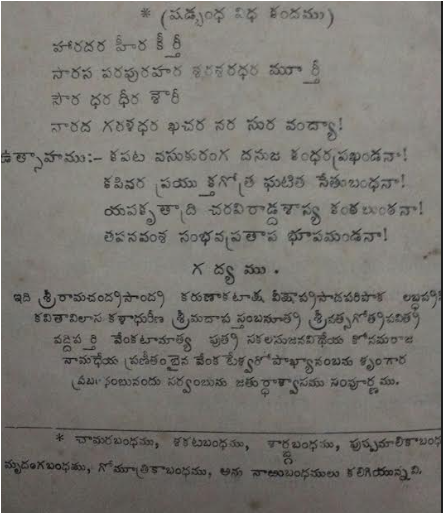 * (షడ్బంధ విధ కందము)
హారదర హీర కీర్తీ
సారస పరపురహర శరశరధర మూర్తీ
సౌర ధర ధీర శౌరీ
నారద గరళధర ఖచర నర సుర వంద్యా!
ఉత్సాహము:- కపట వసుకురంగ దనుజ కంధరప్రఖండనా!
కపివర ప్రయుక్తగోత్ర ఘటిత సేతుబంధనా!
యపకృతాద్రి చరవిరాడ్దశాస్య కంకలుంకనా!
తపనవంశ సంభవప్రతాప భూపమండనా!
గద్యము.
ఇది శ్రీరామచంద్రసాంద్ర కరుణాకటాక్ష వీక్షాప్రసాదపరిపాక లబ్ధవ్రతి
కవితావిలాస కళాధురీణ శ్రీమదాపస్తంబసూత్ర శ్రీవత్సగోత్రపవిత్ర
వద్దిపర్తి వేంకటామాత్య పుత్ర సకలసుజనవిధేయ కోనమరాజ
నామధేయ ప్రణీతంబైన వేంకటేశ్వరోపాఖ్యానంబను శృంగార
ప్రబంధంబునందు సర్వంబును జతుర్థాశ్వాసము సంపూర్ణము.
* చామరబంధము, శకటబంధము, శార్ఙ్గబంధము, పుష్పమాలికాబంధ
మృదంగబంధము, గోమూత్రికాబంధము, అను నాఱుబంధములు కలిగియున్నవి.